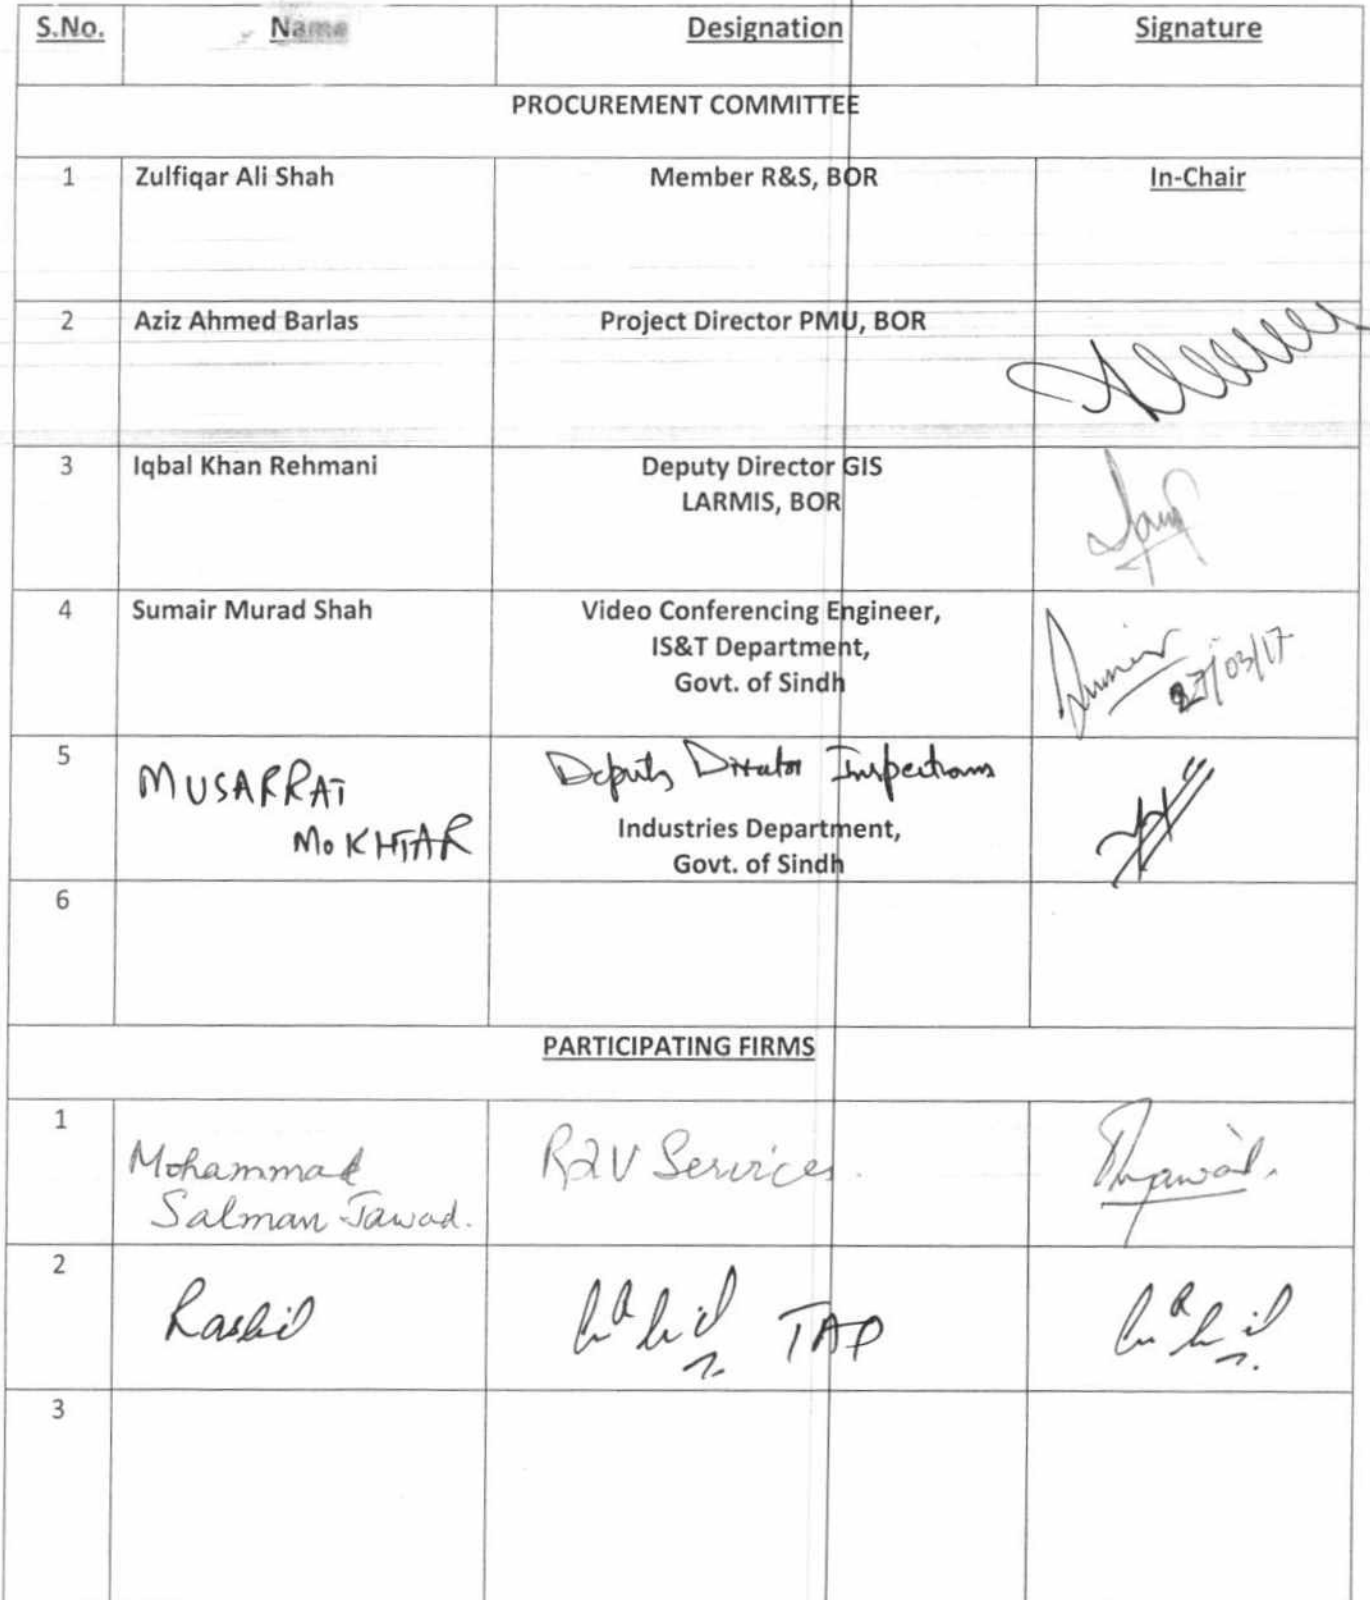 S.No. Name Designation Signature
PROCUREMENT COMMITTEE
1 Zulfiqar Ali Shah Member R&S, BOR In-Chair
2 Aziz Ahmed Barlas Project Director PMU, BOR
3 Iqbal Khan Rehmani Deputy Director GIS
LARMIS, BOR
4 Sumair Murad Shah Video Conferencing Engineer,
IS&T Department,
Govt. of Sindh
27/03/17
5 MUSARRAT
MOKHTAR
Deputy Director Inspections
Industries Department,
Govt. of Sindh
6
PARTICIPATING FIRMS
1 Mohammad
Salman Jawad.
R2V Services.
2 Rashid TAP
3